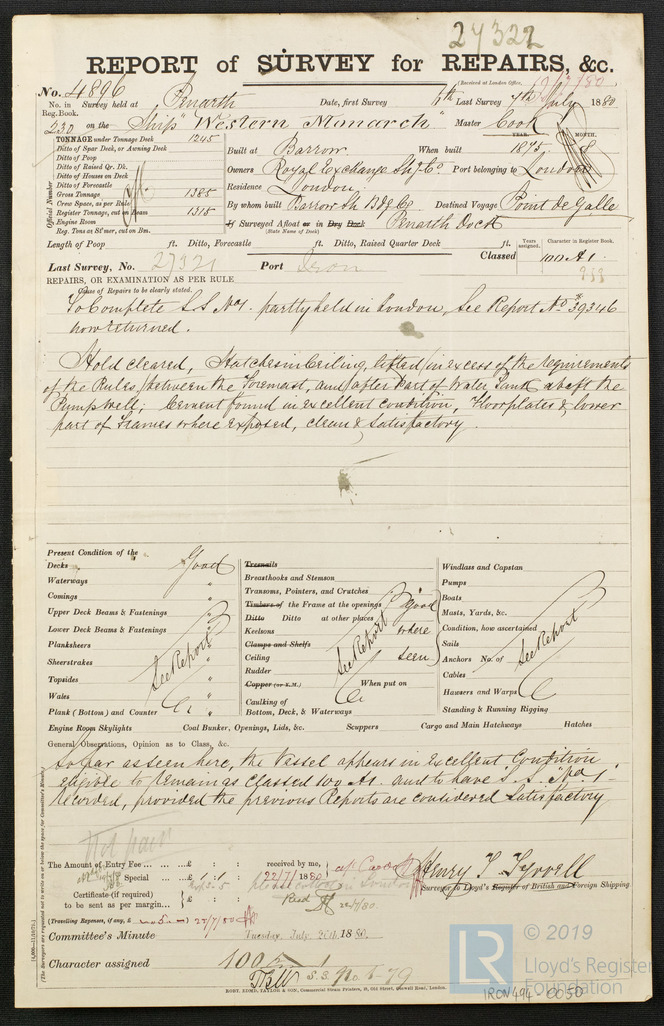 27322
REPORT of SURVEY for REPAIRS, &c.
(Received at London Office,
No. 4896 Survey held at Penarth Date, first Survey 6th Last Survey 7th July 1880
No. in Reg. Book.
230 on the Ship "Western Monarch" Master Cook
TONNAGE under Tonnage Deck 1245
Ditto of Spar Deck, or Awning Deck
Ditto of Poop
Ditto of Raised Qr. Dk.
Ditto of Houses on Deck
Ditto of Forecastle
Gross Tonnage 1385
Crew Space, as per Rule
Register Tonnage, cut on Beam 1315
Engine Room
Reg. Tons as St'mer, cut on Bm.
Official Number
YEAR. MONTH.
Built at Barrow When built 1875 8
Owners Royal Exchange Sh. Co Port belonging to London
Residence London
By whom built Barrow Sh. Bdg Co Destined Voyage Point de Galle
If Surveyed Afloat or in Dry Dock Penarth Dock
(State Name of Dock)
Length of Poop ft. Ditto, Forecastle ft. Ditto, Raised Quarter Deck ft.
Years assigned. Character in Register Book.
Classed 100 A1.
Last Survey, No. 27321 Port Iron
REPAIRS, OR EXAMINATION AS PER RULE
Cause of Repairs to be clearly stated.
To Complete S.S. No 1. partly held in London, See Report No. 39346
now returned.
Hold cleared, Hatches in Ceiling, lifted (in excess of the requirements
of the Rules) between the Foremast, and after part of Water Tank abaft the
Pumpwell; Cement found in excellent condition, Floorplates & lower
part of Frames where exposed, clean & satisfactory.
Present Condition of the
Decks Good
Waterways "
Comings "
Upper Deck Beams & Fastenings "
Lower Deck Beams & Fastenings "
Planksheers "
Sheerstrakes "
Topsides "
Wales "
Plank (Bottom) and Counter "
See Report
Treenails
Breasthooks and Stemson
Transoms, Pointers, and Crutches
Timbers of the Frame at the openings good
Ditto Ditto at other places
Keelsons where
Clamps and Shelfs
Ceiling seen
Rudder
Copper (or Y.M.) When put on
Caulking of
Bottom, Deck, & Waterways
See Report
Windlass and Capstan
Pumps
Boats
Masts, Yards, &c.
Condition, how ascertained
Sails
Anchors No. of
Cables
Hawsers and Warps
Standing & Running Rigging
See Report
Engine Room Skylights Coal Bunker, Openings, Lids, &c. Scuppers Cargo and Main Hatchways Hatches
General Observations, Opinion as to Class, &c.
So far as seen here, the Vessel appears in Excellent Condition
eligible to remain as Classed 100 A1. and to have S.S. No 1
recorded, provided the previous Reports are considered Satisfactory
Not paid
The Amount of Entry Fee ... ...£ : : received by me,
Special ... ...£ 1 : 1 : 22/7/1880
Certificate (if required)
to be sent as per margin... £ : :
Henry T Tyrrell
Surveyor to Lloyd's Register of British and Foreign Shipping
(Travelling Expenses, if any, £ 22/7/80
Committee's Minute Tuesday, July 20th, 1880.
Character assigned 100 A 1
S.S. No. 1-79
ROBT. EDMD. TAYLOR & SON, Commercial Steam Printers, 19, Old Street, Goswell Road, London.
(The Surveyors are requested not to write on or below the space for Committee's Minute.)
LR
© 2019
Lloyd's Register
Foundation
IRON494-0050